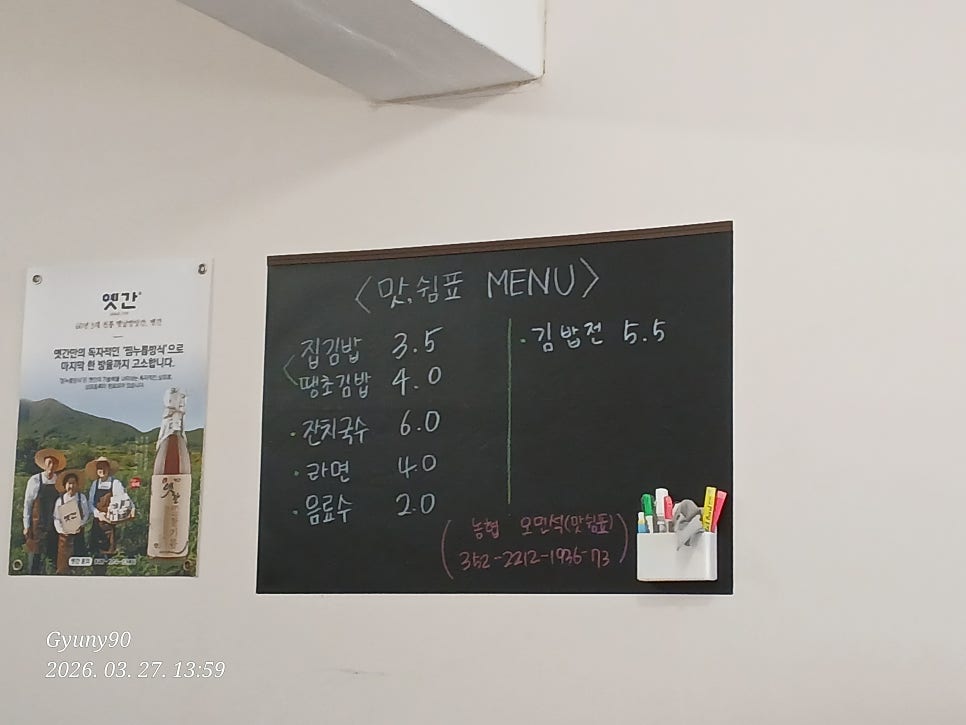 옛간
60년 3대 전통 옛날방앗간, 옛간
옛간만의 독자적인 "찜누름방식"으로
마지막 한 방울까지 고소합니다.
옛간
<맛,쉼표 MENU>
집김밥 3.5
땡초김밥 4.0
·잔치국수 6.0
·라면 4.0
·음료수 2.0
·김밥전 5.5
(농협 오민석(맛쉼표)
352-2212-1936-73)
Gyuny90
2026. 03. 27. 13:59